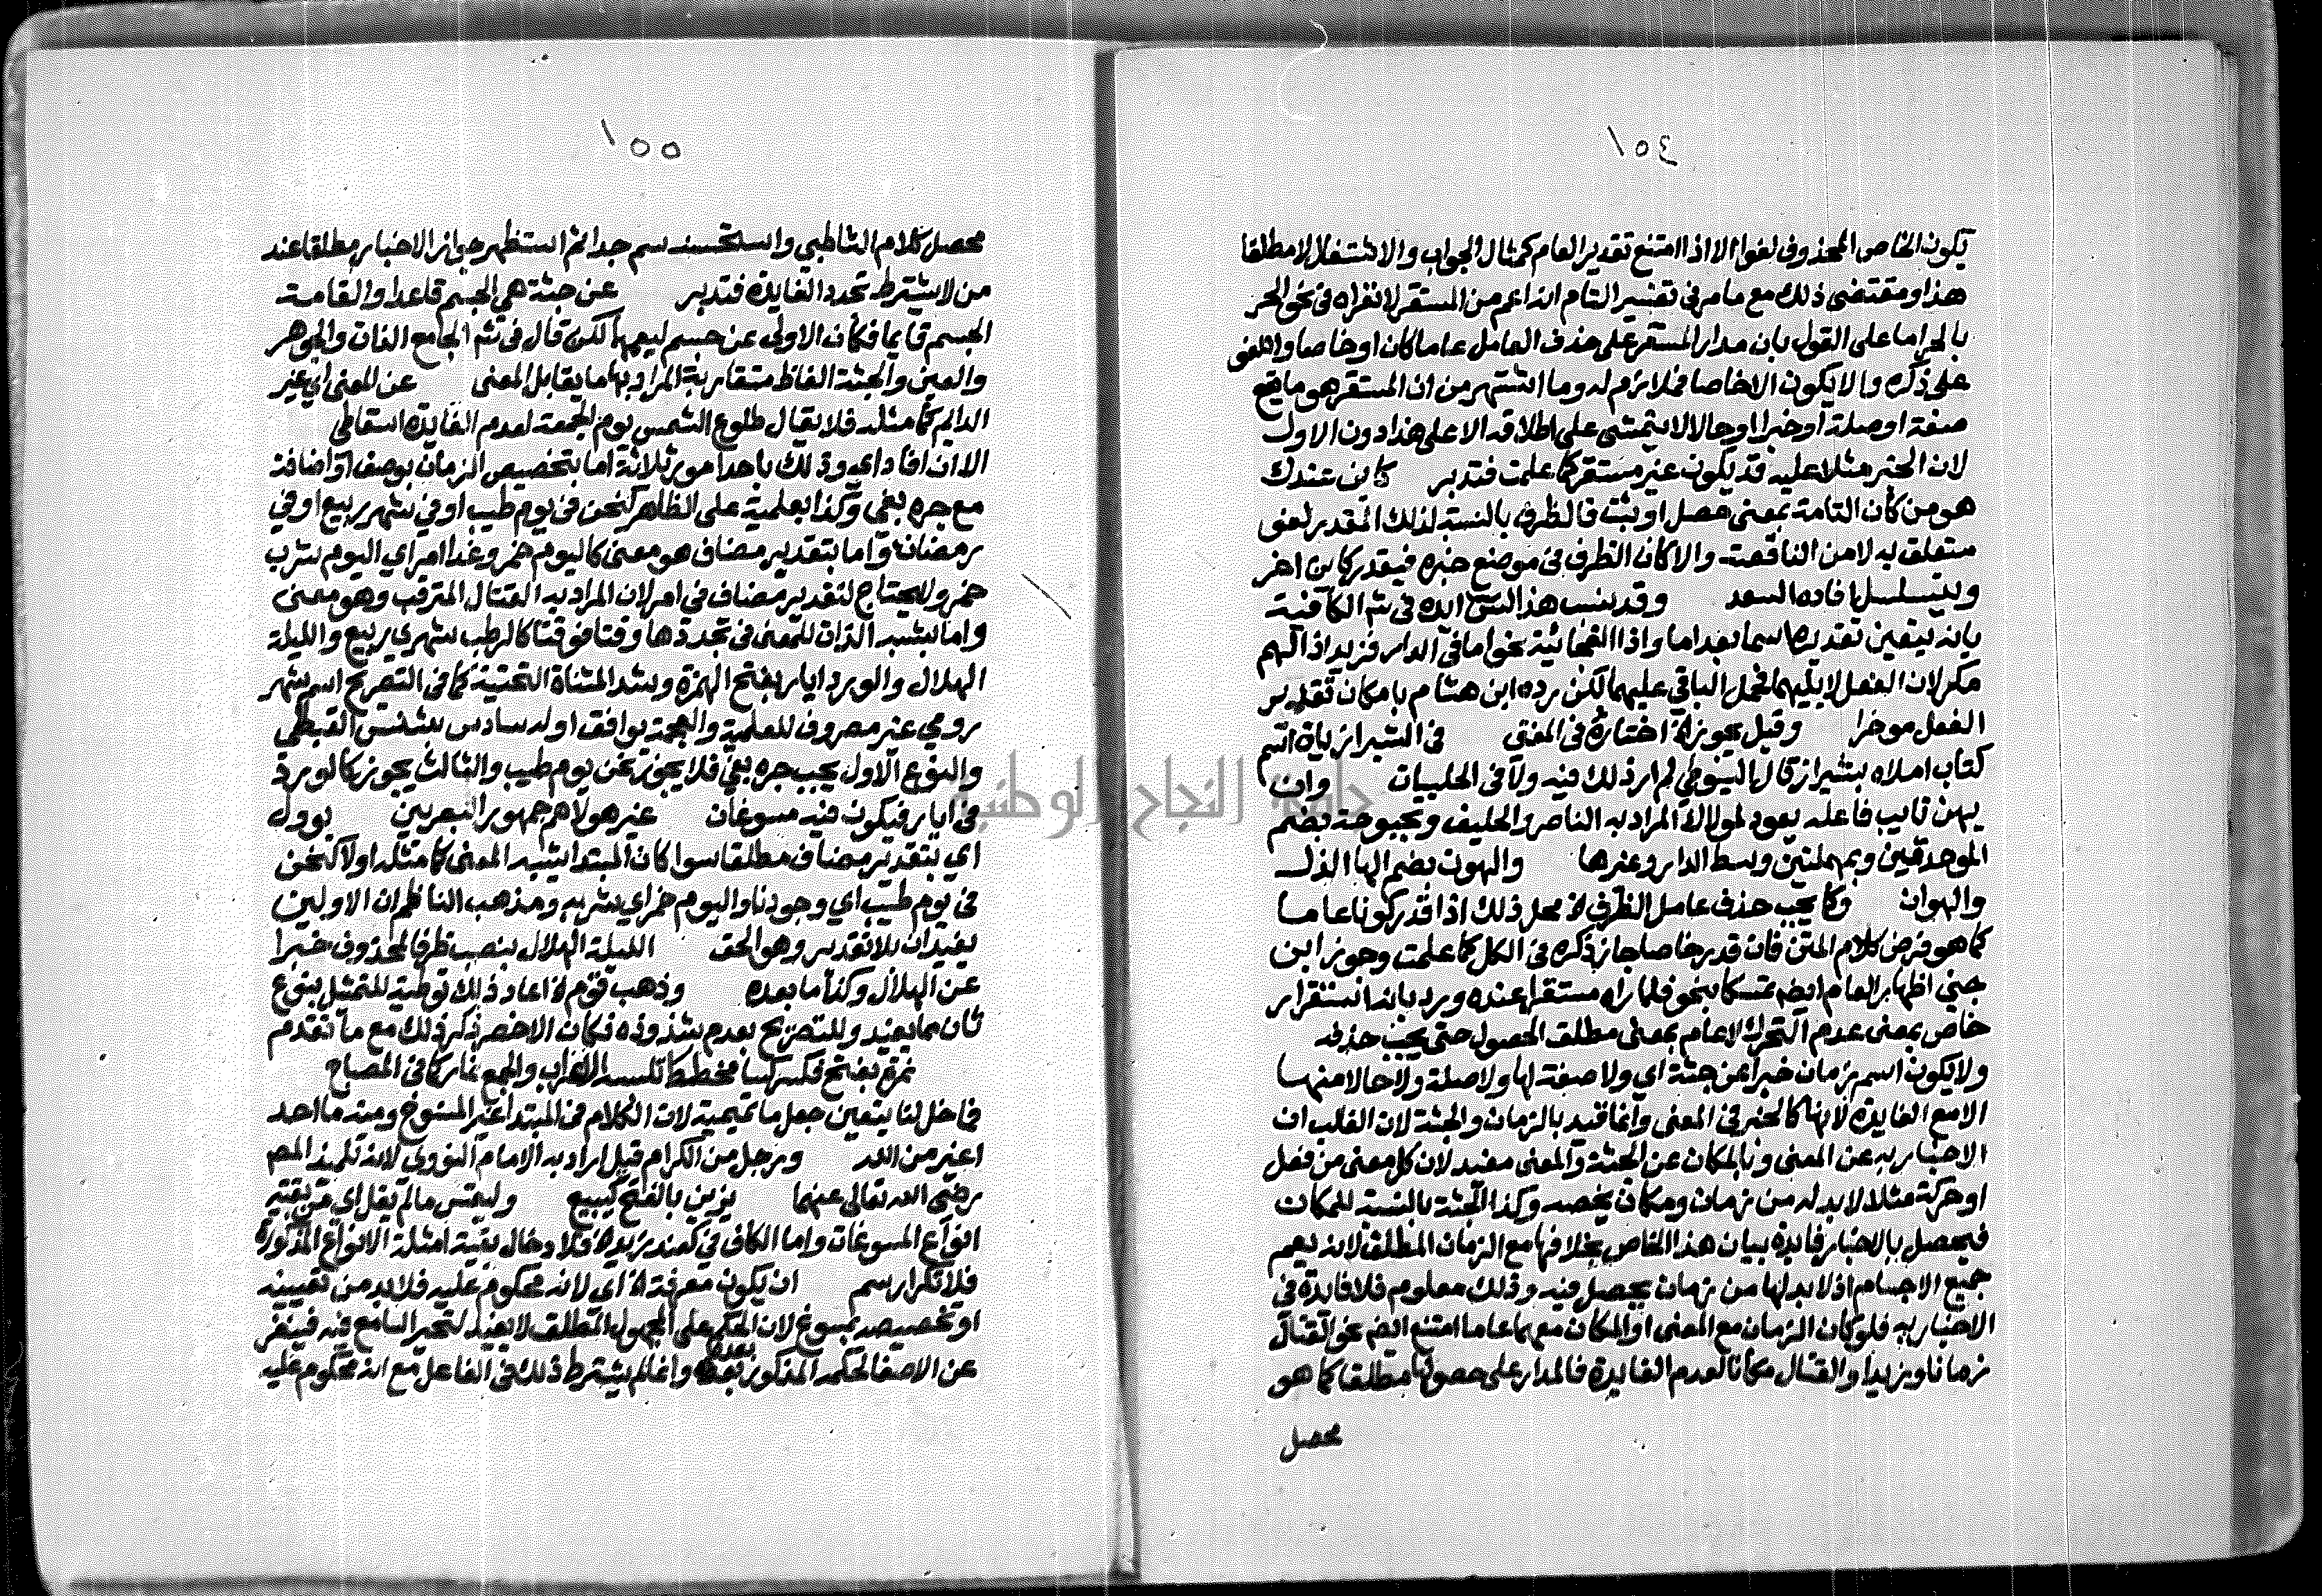 ١٥٤
يكون الخاص المحذوف لغوا الا اذا امتنع تقدير العام كمثال الجواب والاشتغال لا مطلقا
هذا ومقتضى ذلك مع ما مر في تفسير التام انه اعم من المستقر لانفراده في نحو الحر
بالحر اما على القول بان مدار المستقر على حذف العامل عاما كان او خاصا واللغو
على ذكره والا يكون الا خاصا فملازم له وما اشتهر من ان المستقر هو ما يقع
صفة او صلة او خبرا او حالا لا يتمشى على اطلاقه الا على هذا دون الاول
لان الخبر مثلا عليه قد يكون غير مستقر كما علمت فتدبر كائن عندك
هو من كان التامة بمعنى حصل او ثبت فالظرف بالنسبة لذلك المقدر لغو
متعلق به لا من الناقصة والا كان الظرف في موضع خبره فيقدر كائن اخر
ويتسلسل افاده السعد وقد ينسب هذا ايده في شم الكافية
بانه يتعين تقديره اسما بعد اما واذا الفجائية نحو اما في الدار فزيد اذا لهم
مكر لان الفعل لا يليهما فحمل الباقي عليهما لكن رده ابن هشام بامكان تقدير
الفعل موخرا وقيل يجوز اختاره في المغني في الشيرازيات اسم
كتاب املاه بشيراز قال السيوطي لم ار ذلك فيه ولا في الحلبيات وان
يهن نايب فاعله يعود لمولاك المراد به الناصر والحليف وبحبوحة بضم
الموحدتين وبمهملتين وسط الدار وغيرها والهون بضم الها الذل
والهوان وكما يجب حذف عامل الظرف محل ذلك اذا قدر كونا عاما
كما هو فرض كلام المتن فان قدر خاصا جاز ذكره في الكل كما علمت وجوز ابن
جني اظهار العام ايضم تمسكا بنحو فلما راه مستقرا عنده ورد بانه استقرار
خاص بمعنى عدم التحرك لا عام بمعنى مطلق الحصول حتى يجب حذفه
ولا يكون اسم زمان خبرا عن جثة اي ولا صفة لها ولا صلة ولا حالا منها
الا مع الفايدة لانها كالخبر في المعنى وانما قيد بالزمان والجثة لان الغلب ان
الاخبار به عن المعنى وبالمكان عن الجثة والمعنى مفيد لان كل معنى من فعل
او حركة مثلا لا بد له من زمان ومكان يخصه وكذا الجثة بالنسبة للمكان
فيحصل بالاخبار فايدة ببيان هذا الخاص بخلافها مع الزمان المطلق لانه يعم
جميع الاجسام اذ لا بد لها من زمان يحصل فيه وذلك معلوم فلا فايدة في
الاخبار به فلو كان الزمان مع المعنى او المكان معهما عاما امتنع ايضم نحو القتال
زمانا وزيد او القتال مكانا لعدم الفايدة فالمدار على حصولها مطلقا كما هو
محصل
١٥٥
محصل كلام الشاطبي واستحسنه سم جدا ثم استظهر جواز الاخبار مطلقا عند
من لا يشترط تجدد الفايدة فتدبر عن جثة هي الجسم قاعدا والقامة
الجسم قايما فكان الاولى عن جسم ليعمهما لكن قال في شم الجامع الذات والجوهر
والعين والجثة الفاظ متقاربة المراد بها ما يقابل المعنى عن المعنى اي غير
الدايم كما مثله فلا يقال طلوع الشمس يوم الجمعة لعدم الفايدة اسقاطي
الا ان افاد اي وذلك باحد امور ثلاثة اما بتخصيص الزمان بوصف او اضافة
مع جره بفي وكذا بعلمية على الظاهر كنحن في يوم طيب او في شهر ربيع او في
رمضان واما بتقدير مضاف هو معنى كاليوم خمر وغدا امر اي اليوم شرب
خمر ولا يحتاج لتقدير مضاف في امر لان المراد به القتال المترقب وهو معنى
واما بشبه الذات للمعنى في تجددها وقتا فوقتا كالرطب شهري ربيع والليلة
الهلال والورد ايار بفتح الهمزة وشد المثناة التحتية كما في التصريح اسم شهر
رومي غير مصروف للعلمية والعجمة يوافق اوله سادس بشنس القبطي
والنوع الاول يجب جره بفي فلا يجوز نحن يوم طيب والثالث يجوز كالورد
في ايار فيكون فيه مسوغان غير هولاهم جمهور البصريين يوول
اي بتقدير مضاف مطلقا سوا كان المبتدا يشبه المعنى كما مثله اولا كنحن
في يوم طيب اي وجودنا واليوم خمر اي شربه ومذهب الناظم ان الاولين
يفيدان بلا تقدير وهو الحق الليلة الهلال بنصب ظرفا لمحذوف خبرا
عن الهلال وكذا ما بعده وذهب قوم اعاد ذلك توطية للتمثيل بنوع
ثان مما يفيد وللتصريح بعدم شذوذه فكان الاخصر ذكر ذلك مع ما تقدم
نمرة بفتح فكسر كسا مخطط تلبسه الاعراب والجمع نمار كما في المصباح
فما خل لنا يتعين جعل ما تميمية لان الكلام في المبتدا غير المنسوخ ومنه ما احد
اغير من الله ورجل من الكرام قيل اراد به الامام النووي لانه تلميذ المص
رضي الله تعالى عنهما يزين بالفتح كيبيع وليقس ما لم يقل اي من بقية
انواع المسوغات واما الكاف في كعند زيد فلا دخال بقية امثلة الانواع المذكورة
فلا تكرار سم ان يكون معرفة اي لانه محكوم عليه فلا بد من تعيينه
او تخصيصه بمسوغ لان الحكم على المجهول المطلق لا يفيد لتحير السامع فيه فينفر
عن الاصغا لحكمه المذكور بعده وانما لم يشترط ذلك في الفاعل مع انه محكوم عليه
جامعة النجاح الوطنية